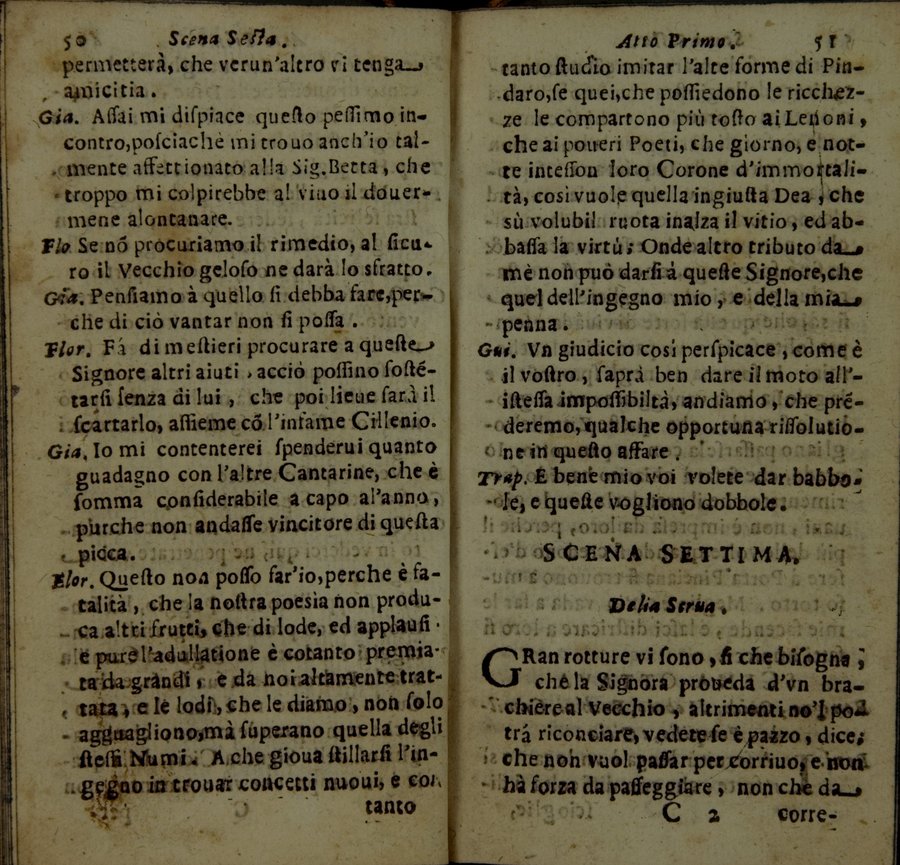 50 Scena Sesta.
permetterà, che verun'altro vi tenga
amicitia.
Gia. Aſſai mi diſpiace queſto peſſimo in-
contro, poſciachè mi trovo anch'io tal-
mente affettionato alla Sig. Betta, che
troppo mi colpirebbe al viuo il douer-
mene alontanare.
Flo Se nõ procuriamo il rimedio, al ſicu-
ro il Vecchio geloſo ne darà lo sfratto.
Gia. Penſiamo à quello ſi debba fare, per-
che di ciò vantar non ſi poſſa.
Flor. Fà di meſtieri procurare a queſte
Signore altri aiuti, acciò poſſino ſoſtẽ-
tarſi ſenza di lui, che poi lieue ſarà il
ſcartarlo, aſſieme cõ l'infame Cillenio.
Gia. Io mi contenterei ſpenderui quanto
guadagno con l'altre Cantarine, che è
ſomma conſiderabile a capo al'anno,
purche non andaſſe vincitore di queſta
picca.
Flor. Queſto non poſſo far'io, perche è fa-
talità, che la noſtra poesia non produ-
ca altri frutti, che di lode, ed applauſi
e pure l'adullatione è cotanto premia-
ta da grandi, e da noi altamente trat-
tata, e le lodi, che le diamo, non ſolo
agguagliono, mà ſuperano quella degli
ſteſſi Numi. A che gioua ſtillarſi l'in-
gegno in trouar concetti nuoui, e con
tanto
Atto Primo. 51
tanto ſtudio imitar l'alte forme di Pin-
daro, ſe quei, che poſſiedono le ricchez-
ze le compartono più toſto ai Lenoni,
che ai poueri Poeti, che giorno, e not-
te inteſſon loro Corone d'immortali-
tà, così vuole quella ingiuſta Dea, che
sù volubil ruota inalza il vitio, ed ab-
baſſa la virtù; Onde altro tributo da
mè non può darſi à queſte Signore, che
quel dell'ingegno mio, e della mia
penna.
Gui. Vn giudicio così perſpicace, come è
il voſtro, ſaprà ben dare il moto all'-
iſteſſa impoſſibiltà, andiamo, che prẽ-
deremo, qualche opportuna riſſolutio-
ne in queſto affare.
Trap. E bene mio voi volete dar babbo-
le, e queſte vogliono dobbole.
SCENA SETTIMA.
Delia Serua.
GRan rotture vi ſono, ſi che biſogna,
chè la Signora proueda d'vn bra-
chiere al Vecchio, altrimenti no'l po-
trá riconciare, vedete ſe è pazzo, dice,
che non vuol paſſar per corriuo, e non
hà forza da paſſeggiare, non che da
C 2 corre-